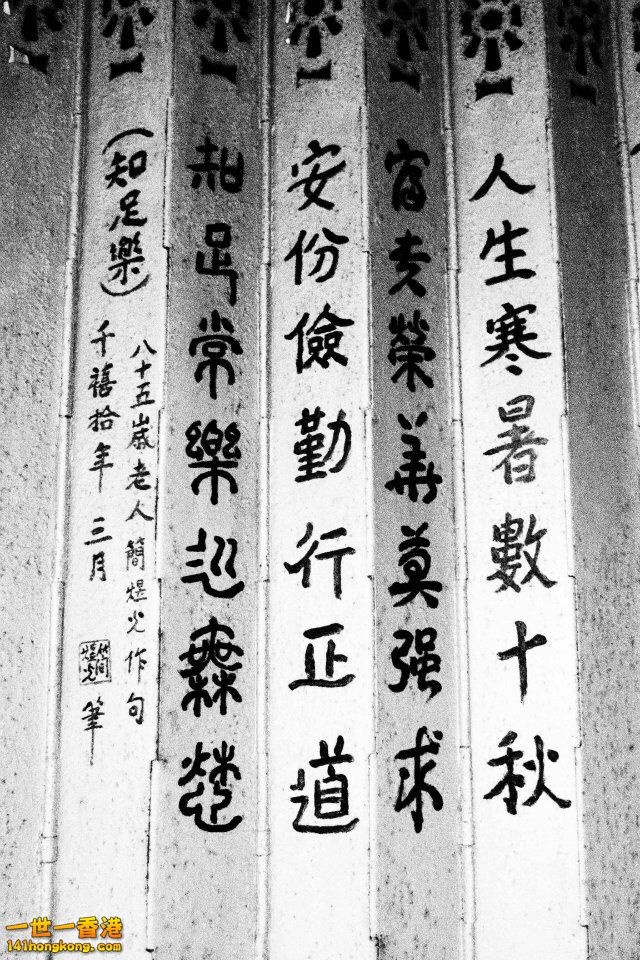 人生寒暑數十秋
富貴榮華莫强求
安份儉勤行正道
知足常樂
(知足樂)
八十五歲老人簡煜光作句
千禧拾年三月
簡煜光
筆
一世一香港
141hongkong.com